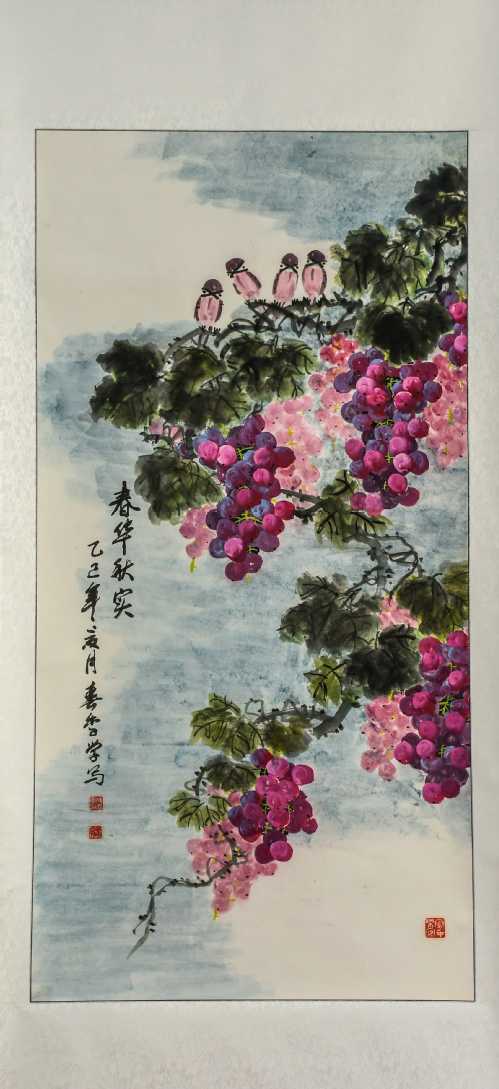 春华秋实
乙巳年夏月春香学写